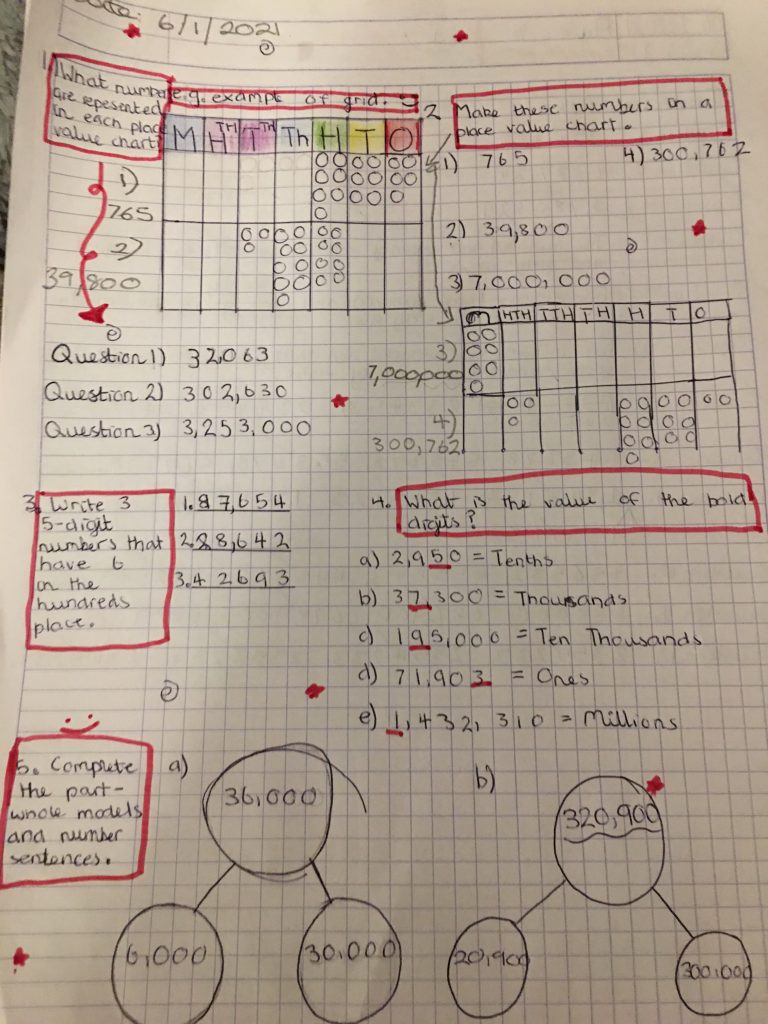 Date: 6/1/2021
1 What numbers are repesented in each place value chart?
e.g. example of grid.
M HTH TTH Th H T O
1)
765
2)
39,800
2 Make these numbers on a place value chart.
1) 765 4) 300,762
2) 39,800
3) 7,000,000
Question 1) 32,063
Question 2) 302,630
Question 3) 3,253,000
M HTH TTH TH H T O
3)
7,000,000
4)
300,762
3. Write 3
5-digit
numbers that
have 6
in the
hundreds
place.
1. 87,654
2. 28,642
3. 42693
4. What is the value of the bold
digits?
a) 2,950 = Tenths
b) 37,300 = Thousands
c) 195,000 = Ten Thousands
d) 71,903 = Ones
e) 1,432,310 = Millions
5. Complete
the part-
whole models
and number
sentences.
a)
36,000
6,000 30,000
b)
320,900
20,900 300,000